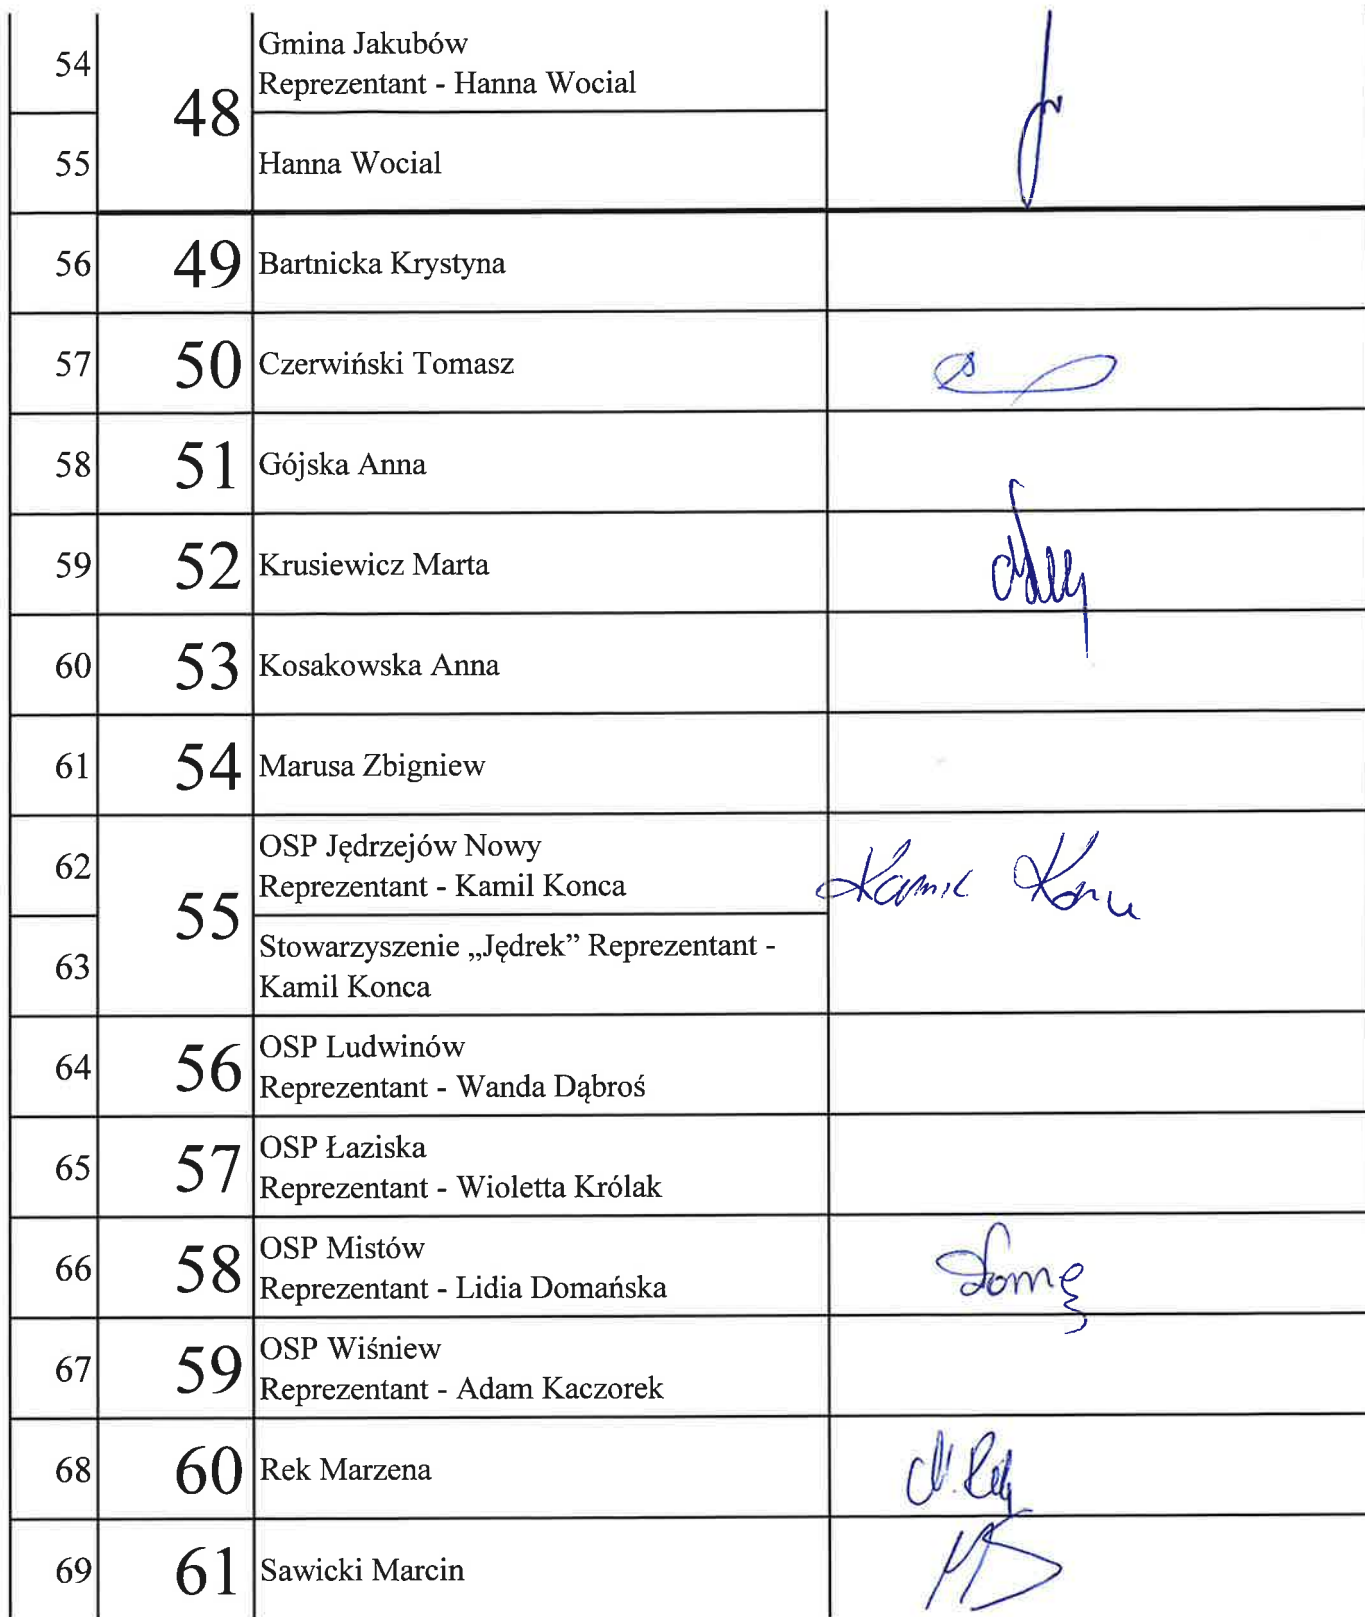 54
48
Gmina Jakubów
Reprezentant - Hanna Wocial
55
Hanna Wocial
56
49
Bartnicka Krystyna
57
50
Czerwiński Tomasz
58
51
Gójska Anna
59
52
Krusiewicz Marta
60
53
Kosakowska Anna
61
54
Marusa Zbigniew
62
55
OSP Jędrzejów Nowy
Reprezentant - Kamil Konca
Kamil
63
Stowarzyszenie „Jędrek” Reprezentant -
Kamil Konca
64
56
OSP Ludwinów
Reprezentant - Wanda Dąbroś
65
57
OSP Łaziska
Reprezentant - Wioletta Królak
66
58
OSP Mistów
Reprezentant - Lidia Domańska
67
59
OSP Wiśniew
Reprezentant - Adam Kaczorek
68
60
Rek Marzena
M. Rek
69
61
Sawicki Marcin